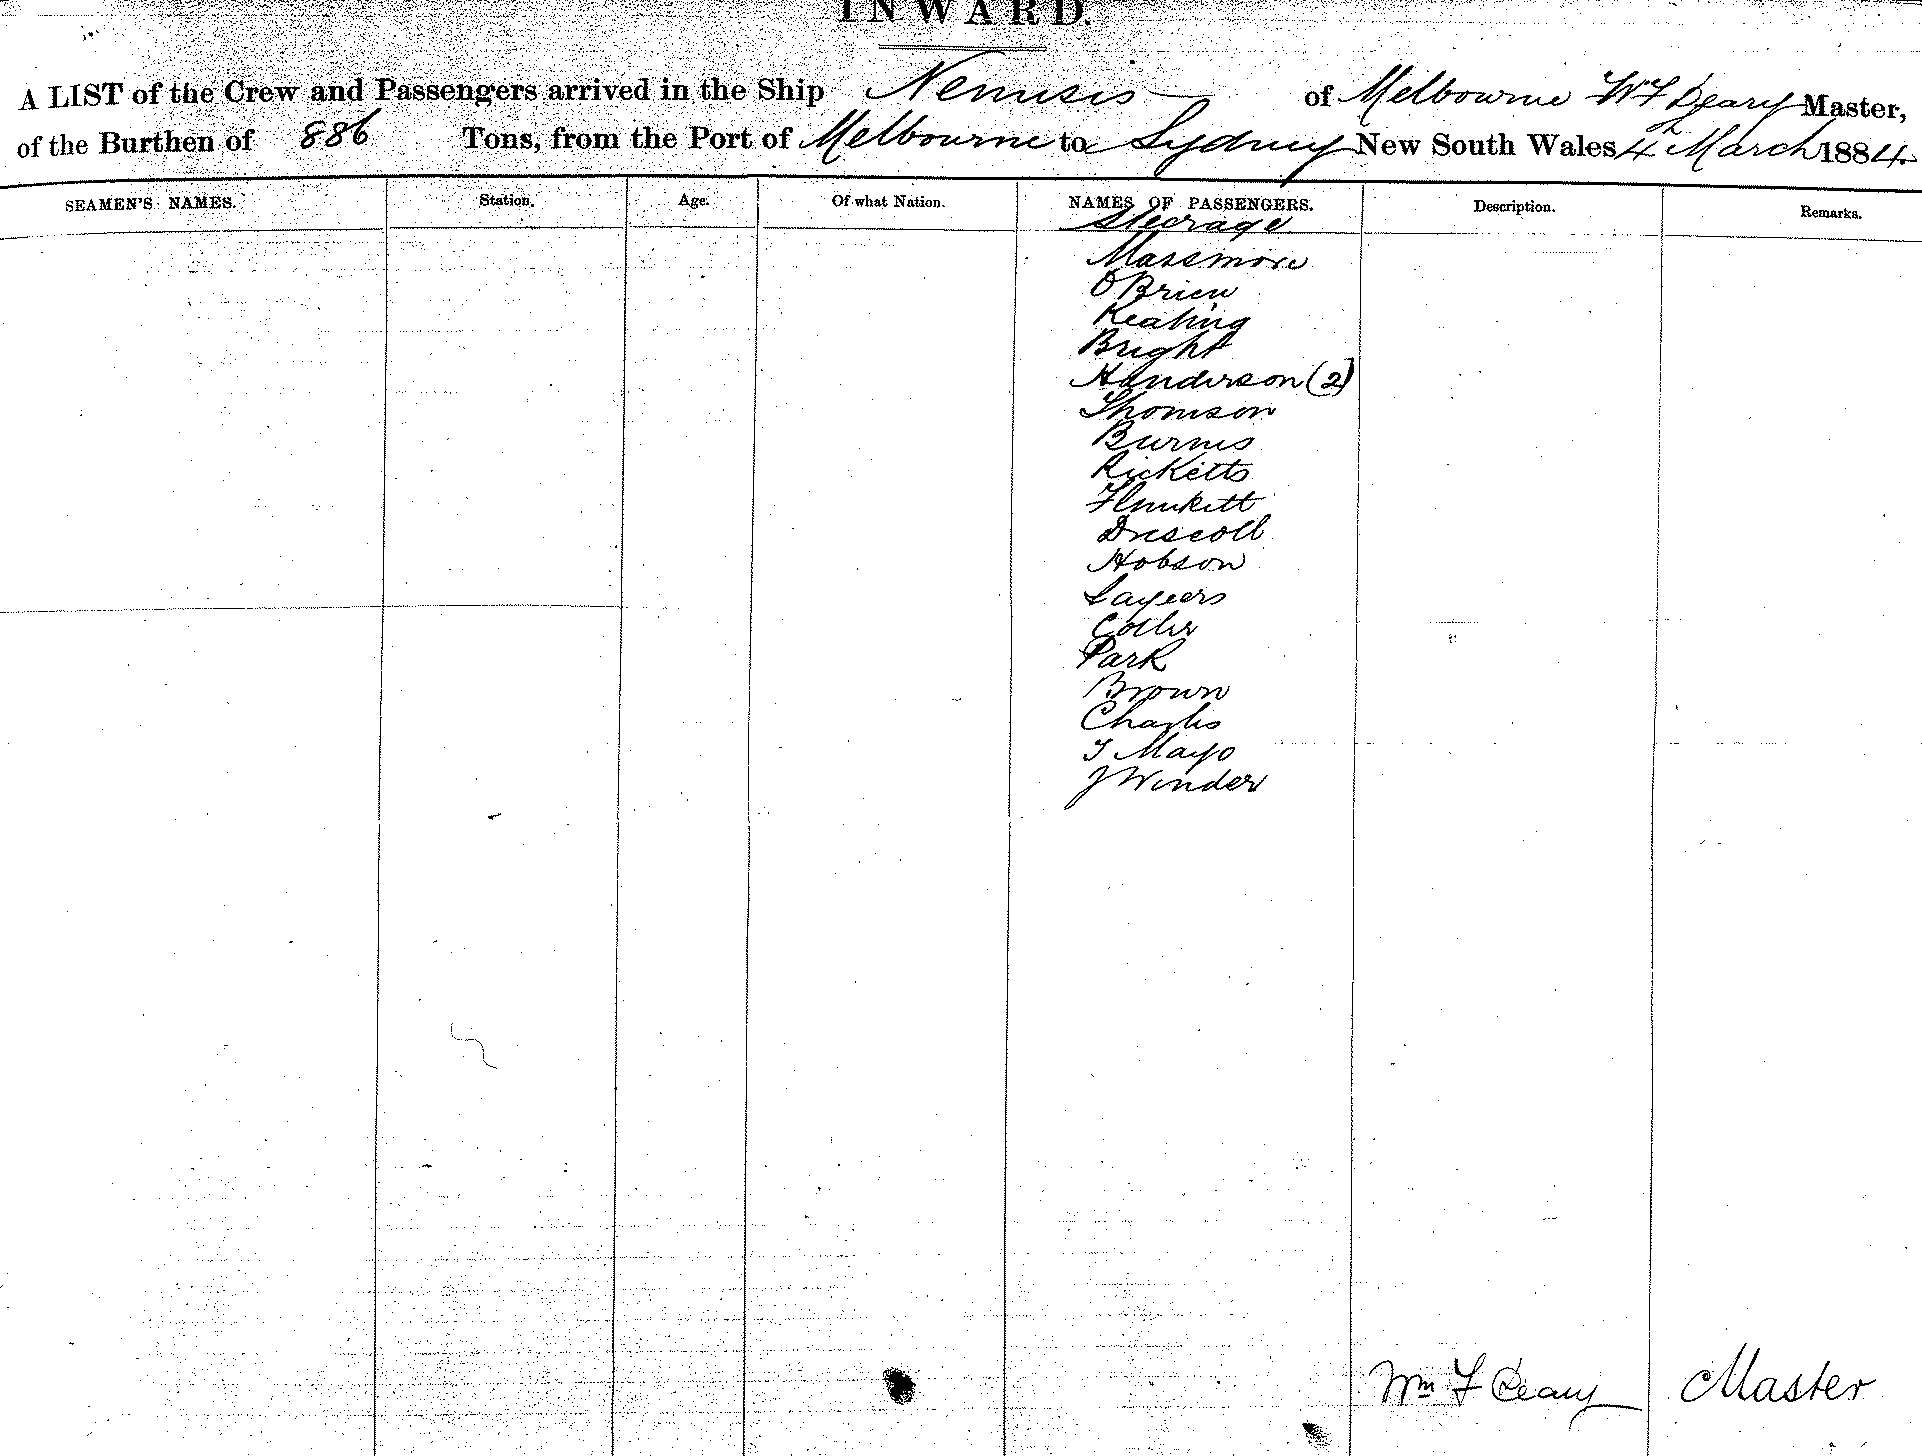 INWARD.
A LIST of the Crew and Passengers arrived in the Ship Nemisis of Melbourne Wm F Geary Master,
of the Burthen of 886 Tons, from the Port of Melbourne to Sydney New South Wales 4 March 1884
SEAMEN'S NAMES. Station. Age. Of what Nation. NAMES OF PASSENGERS. Description. Remarks.
Steerage
Massmore
O'Brien
Keating
Bright
Henderson (2)
Thomson
Burns
Ricketts
Driscoll
Hobson
Sayers
Park
Brown
Charles
T Mayo
J Winder
Wm F Geary Master